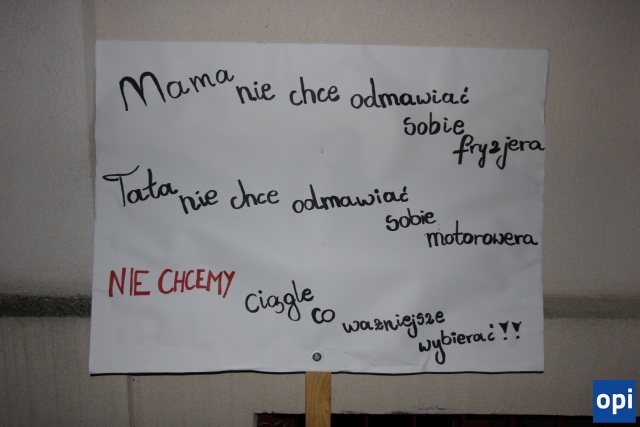 Mama nie chce odmawiać
sobie
fryzjera
Tata nie chce odmawiać
sobie
motorowera
NIE CHCEMY ciągle
co ważniejsze
wybierać!!
opi